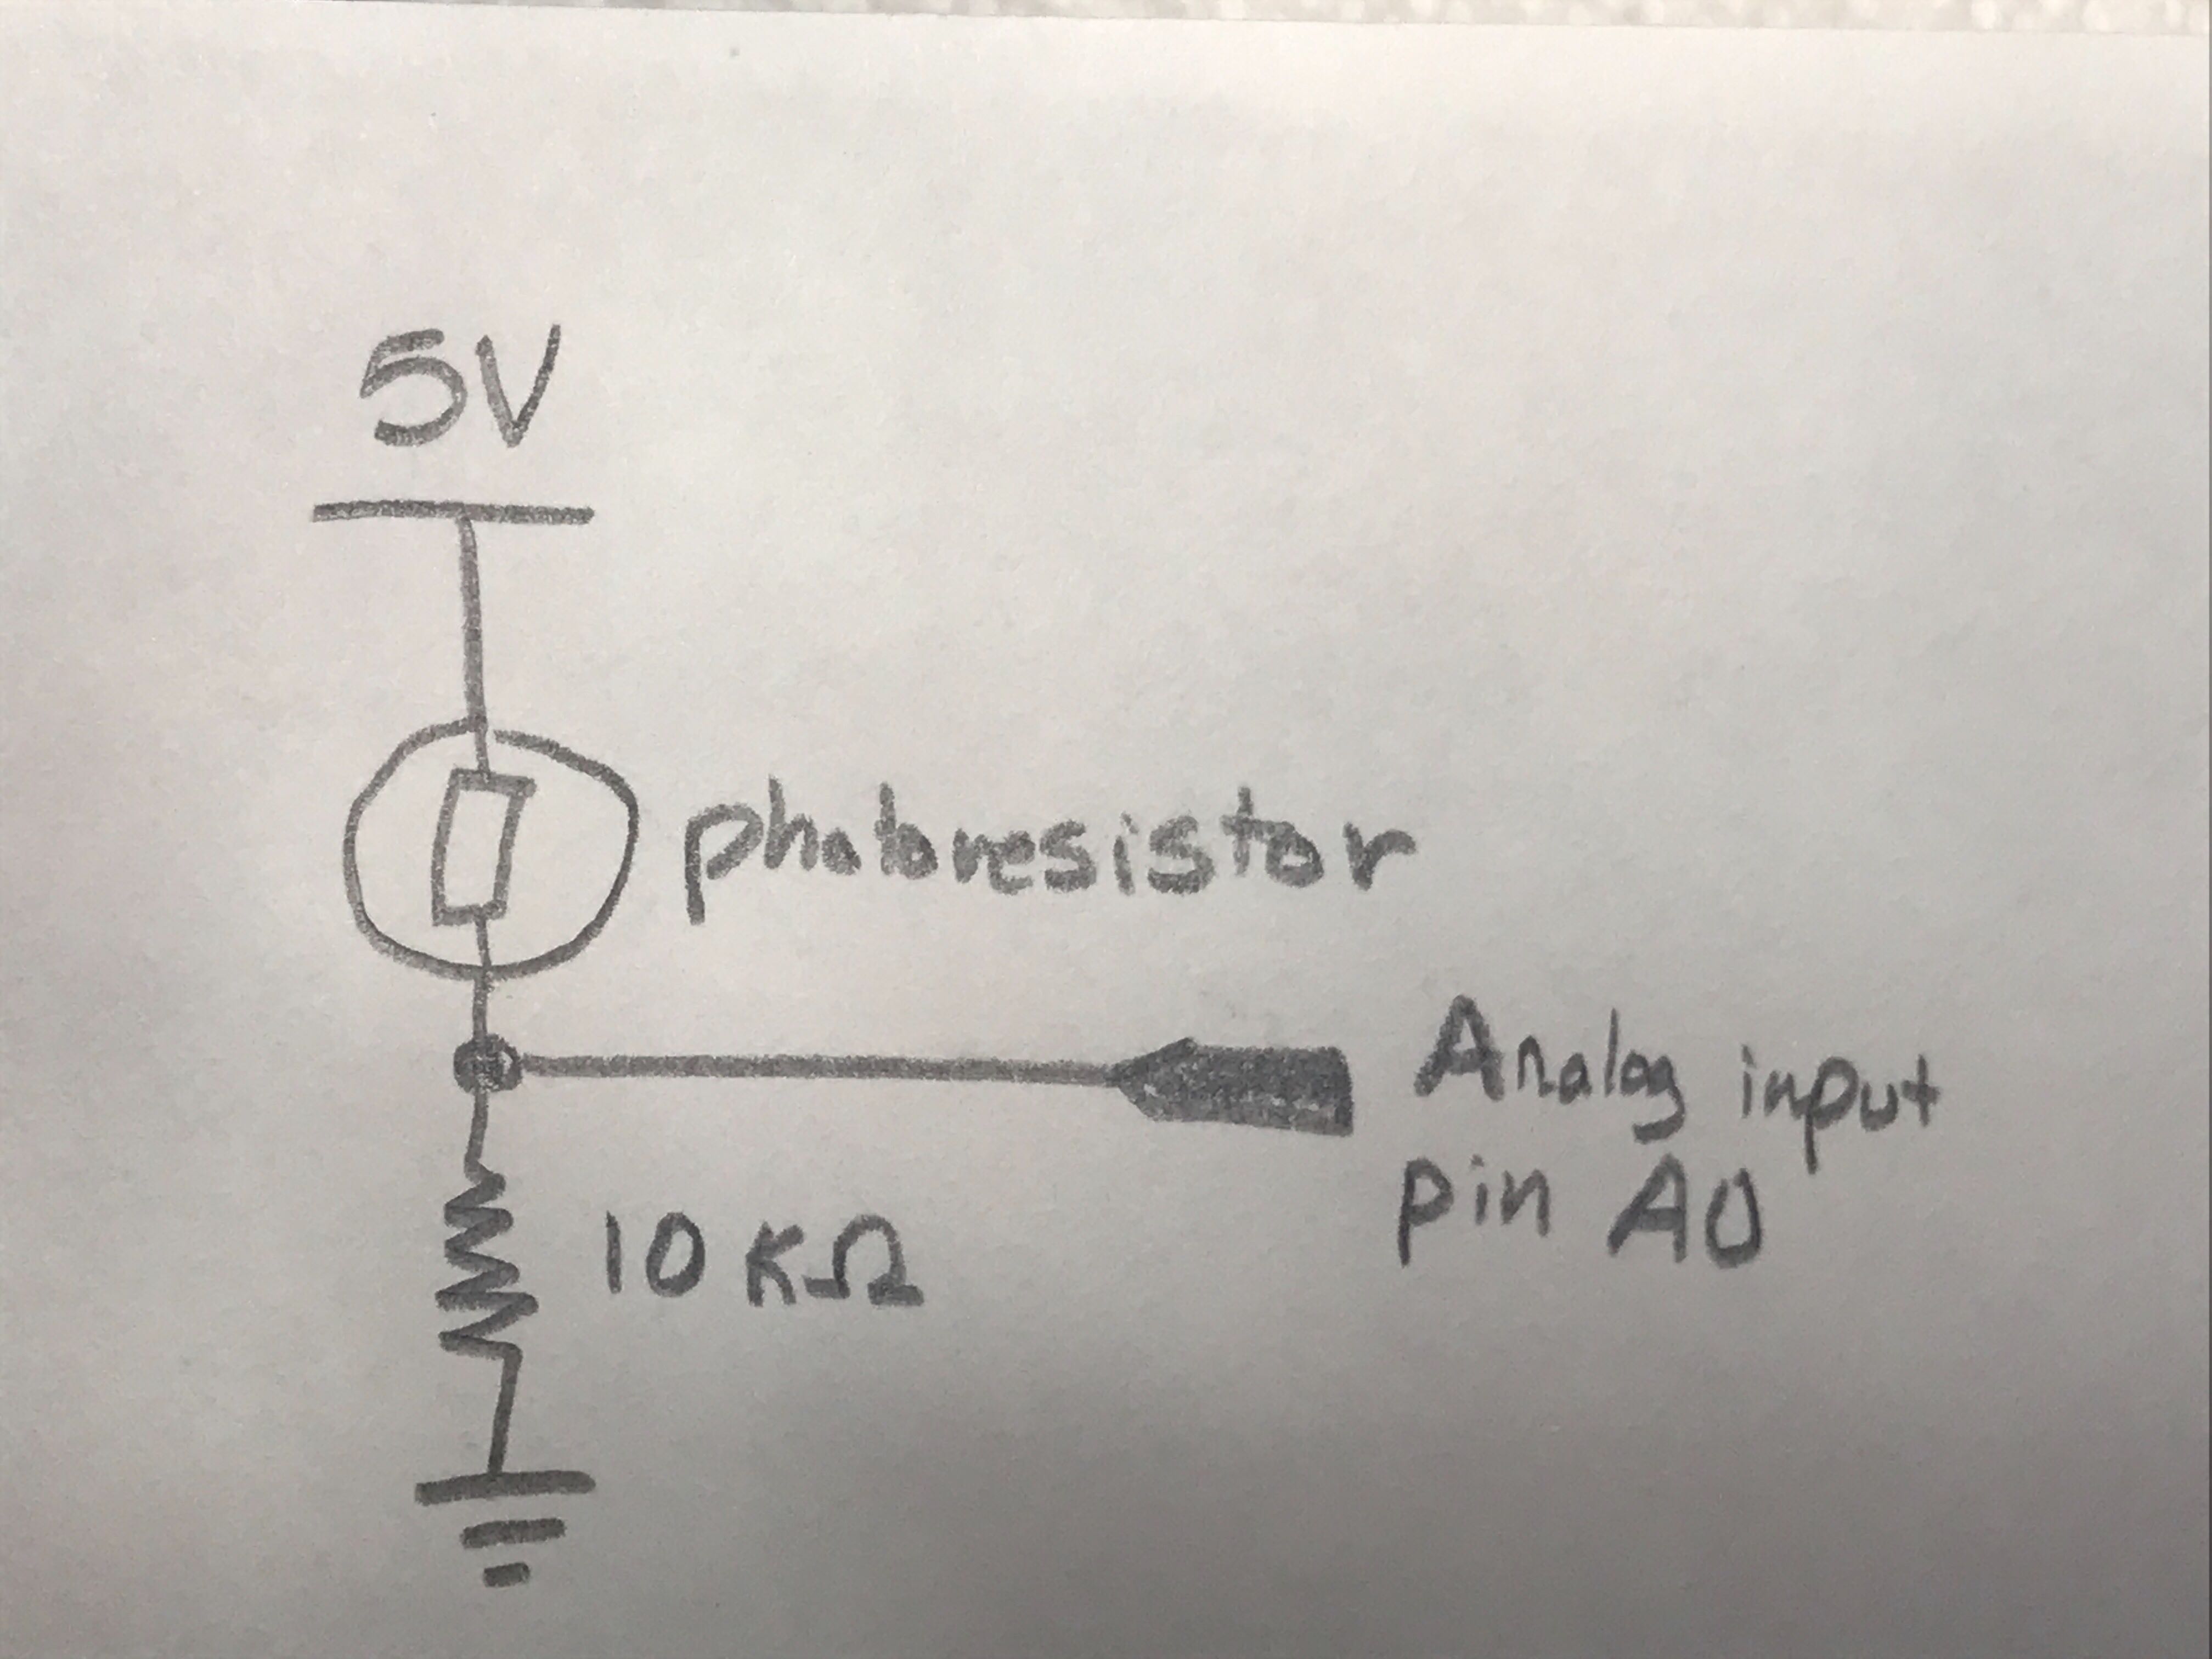 5V
photoresistor
Analog input
pin A0
10 KΩ